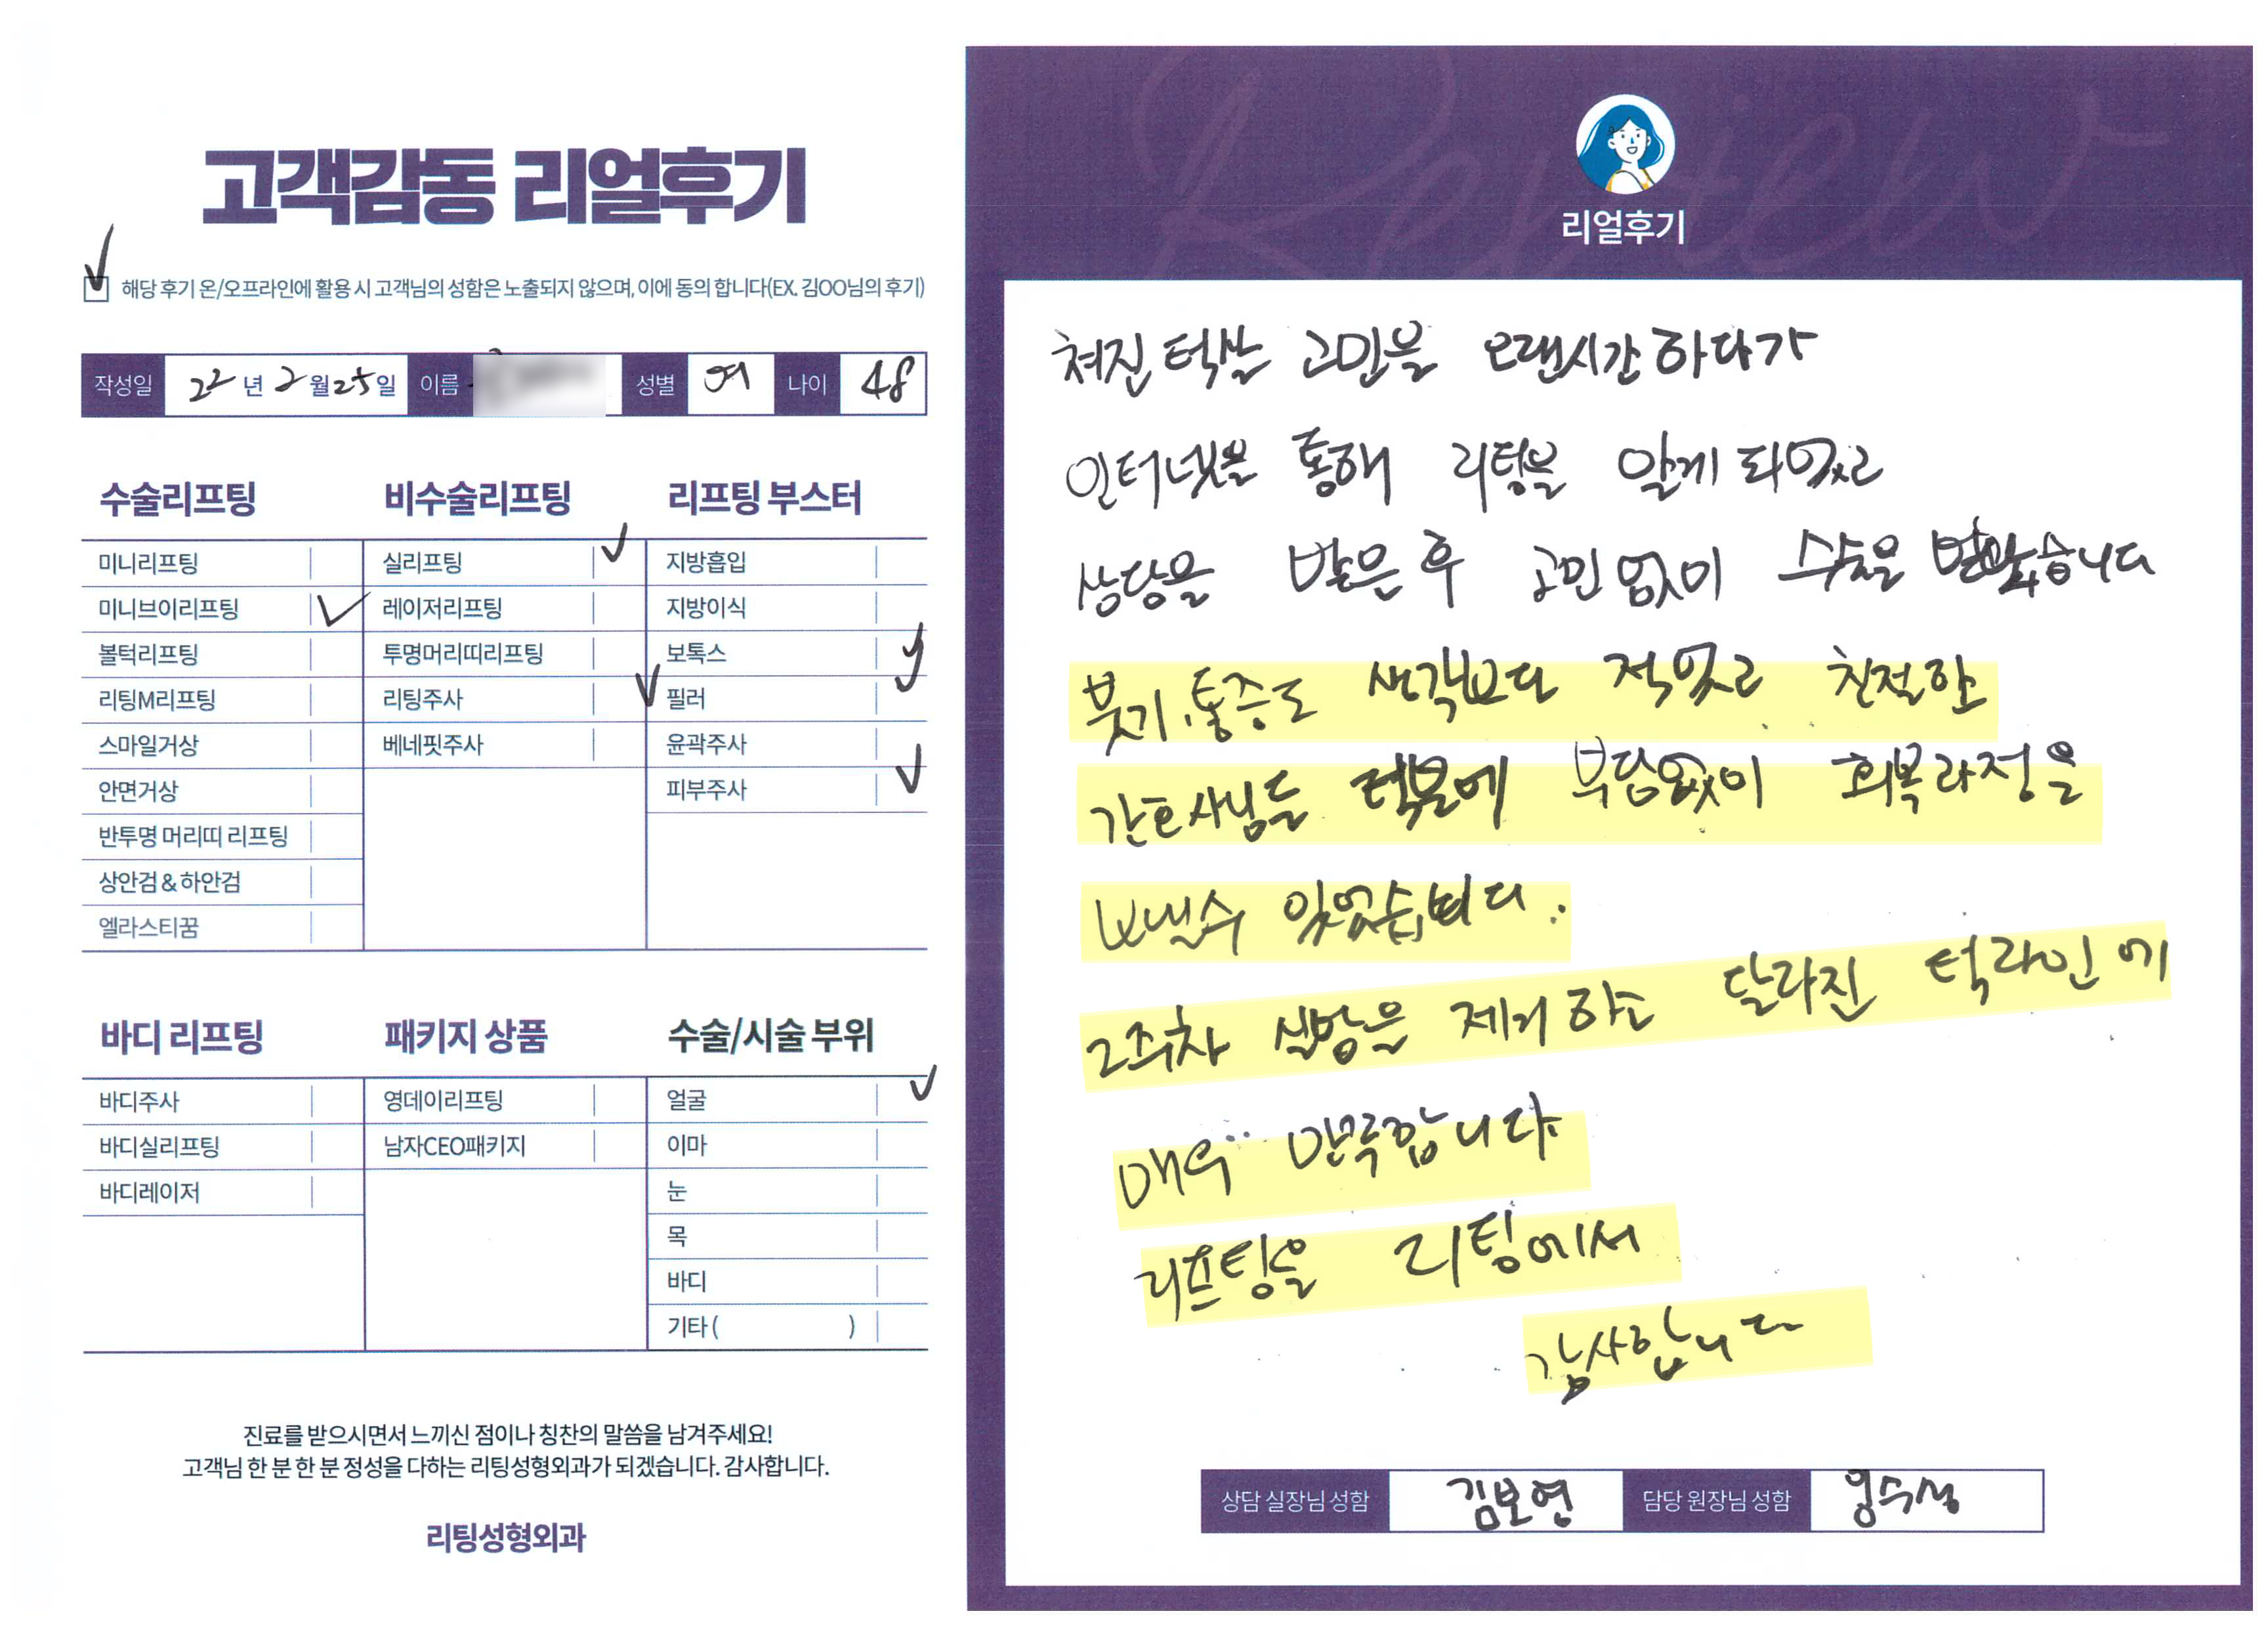 고객감동 리얼후기
해당 후기 온/오프라인에 활용 시 고객님의 성함은 노출되지 않으며, 이에 동의 합니다(EX. 김OO님의 후기)
작성일 22년 2월 25일 이름 성별 여 나이 48
수술리프팅
미니리프팅
미니브이리프팅
볼턱리프팅
리팅M리프팅
스마일거상
안면거상
반투명 머리띠 리프팅
상안검 & 하안검
엘라스티꿈
비수술리프팅
실리프팅
레이저리프팅
투명머리띠리프팅
리팅주사
베네핏주사
리프팅 부스터
지방흡입
지방이식
보톡스
필러
윤곽주사
피부주사
바디 리프팅
바디주사
바디실리프팅
바디레이저
패키지 상품
영데이리프팅
남자CEO패키지
수술/시술 부위
얼굴
이마
눈
목
바디
기타 ( )
진료를 받으시면서 느끼신 점이나 칭찬의 말씀을 남겨주세요!
고객님 한 분 한 분 정성을 다하는 리팅성형외과가 되겠습니다. 감사합니다.
리팅성형외과
Review
리얼후기
쳐진 턱살 고민을 오랜시간 하다가
인터넷을 통해 리팅을 알게 되었고
상담을 받은 후 고민 없이 수술을 받았습니다
붓기, 통증도 생각보다 적었고 친절한
간호사님들 덕분에 부담없이 회복과정을
보낼수 있었습니다.
2주차 실밥을 제거 하고 달라진 턱라인에
매우 만족합니다
리프팅을 리팅에서
감사합니다
상담 실장님 성함 김보연 담당 원장님 성함